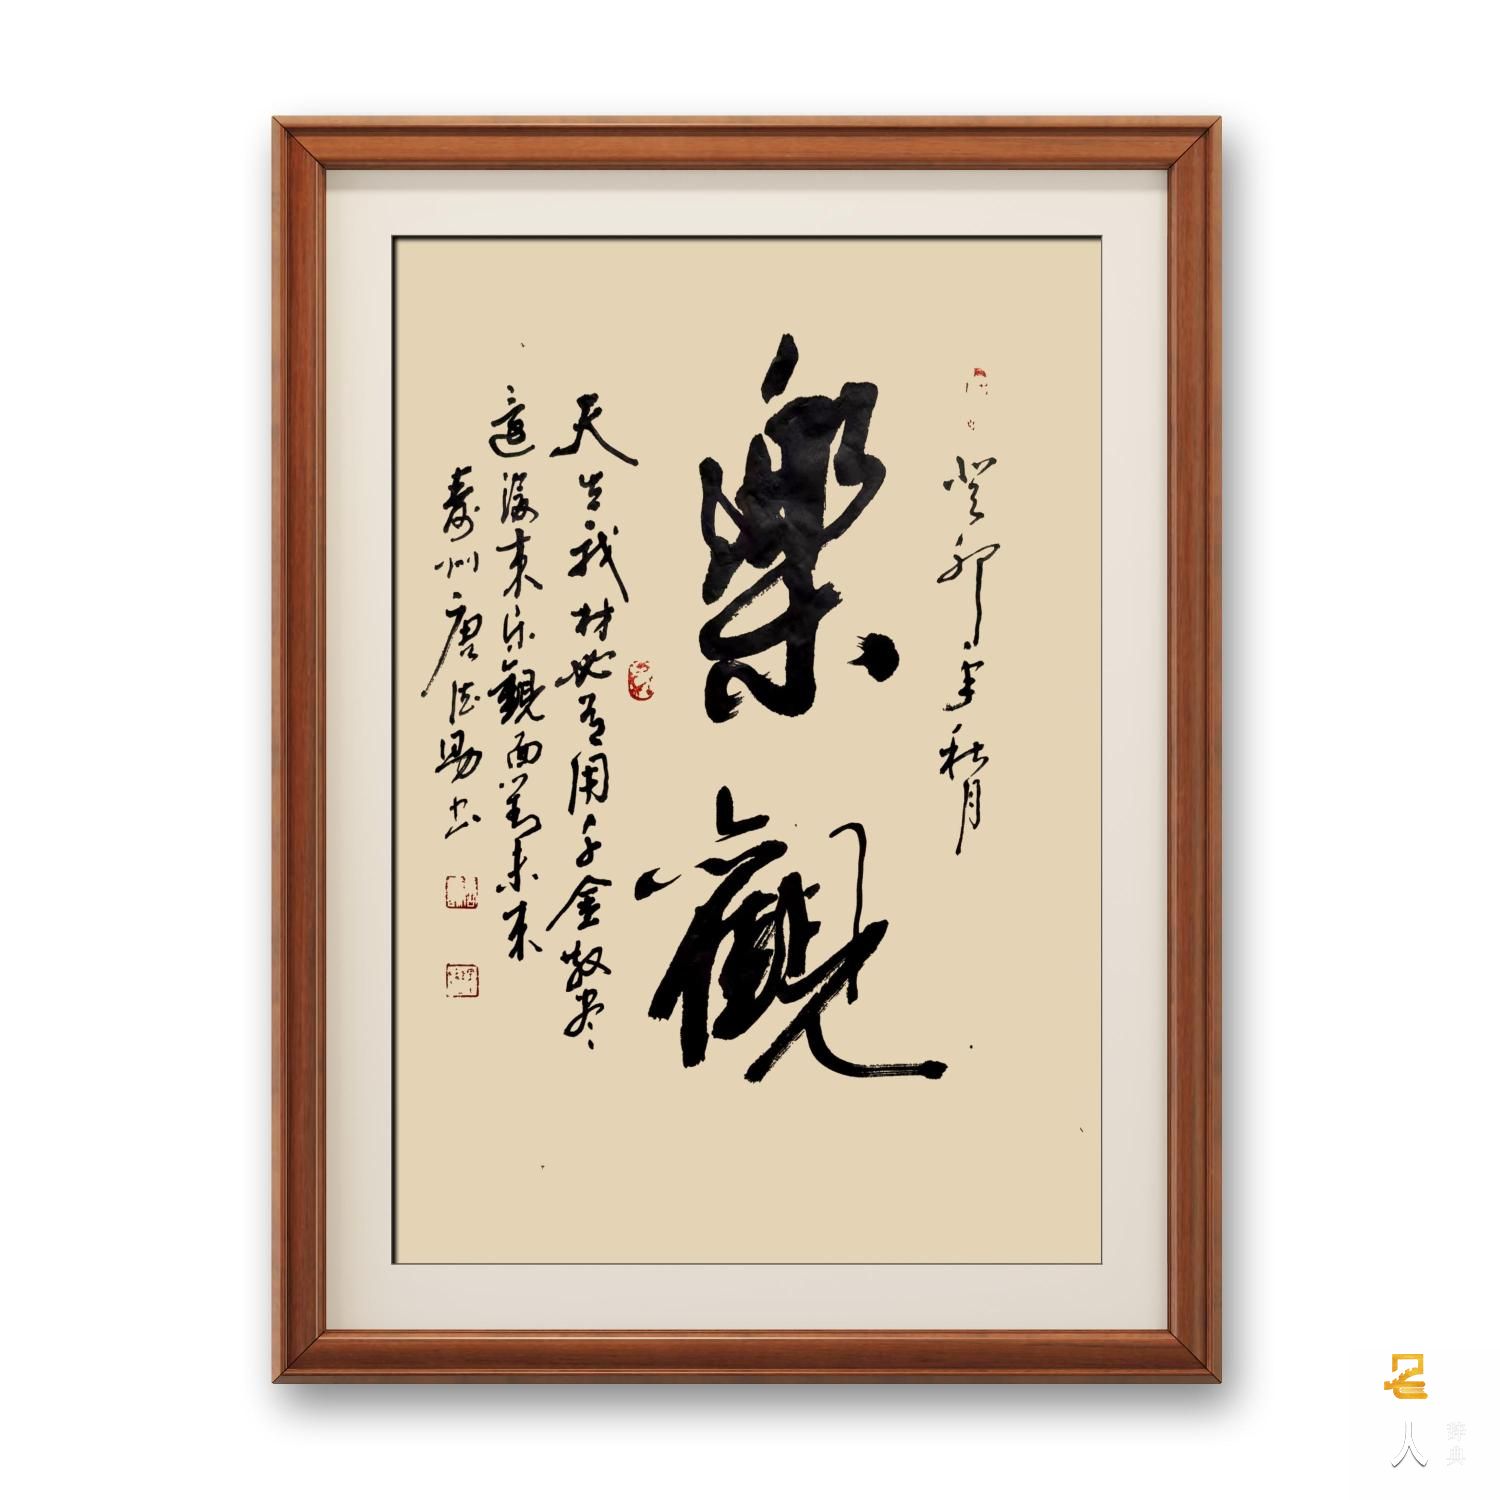 癸卯年秋月
樂觀
天生我材必有用千金散尽
還復来乐觀面對未来
壽州唐德勇书
名人
辞典